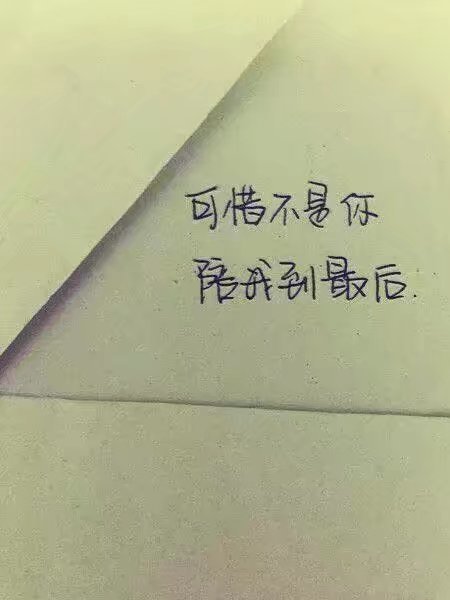 可惜不是你
陪我到最后.